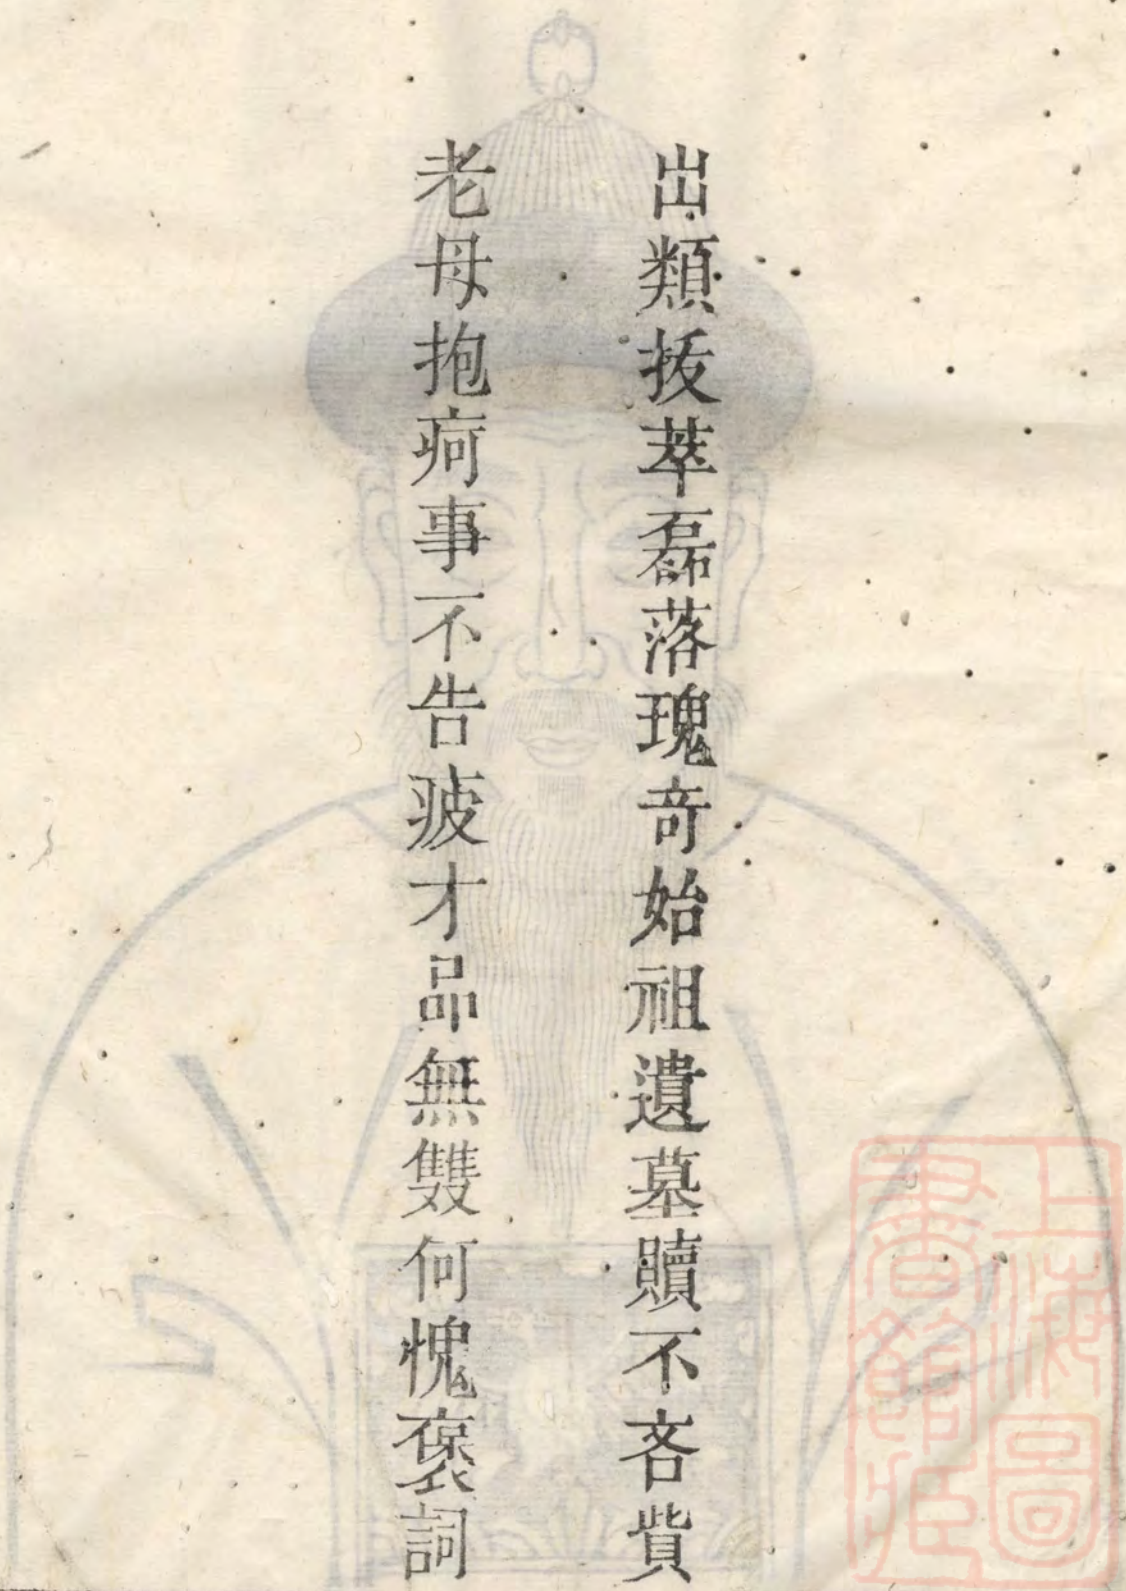 出類拔萃磊落瑰奇始祖遺墓贖不吝貲
老母抱疴事不告疲才品無雙何愧褒詞
上海圖
書館藏